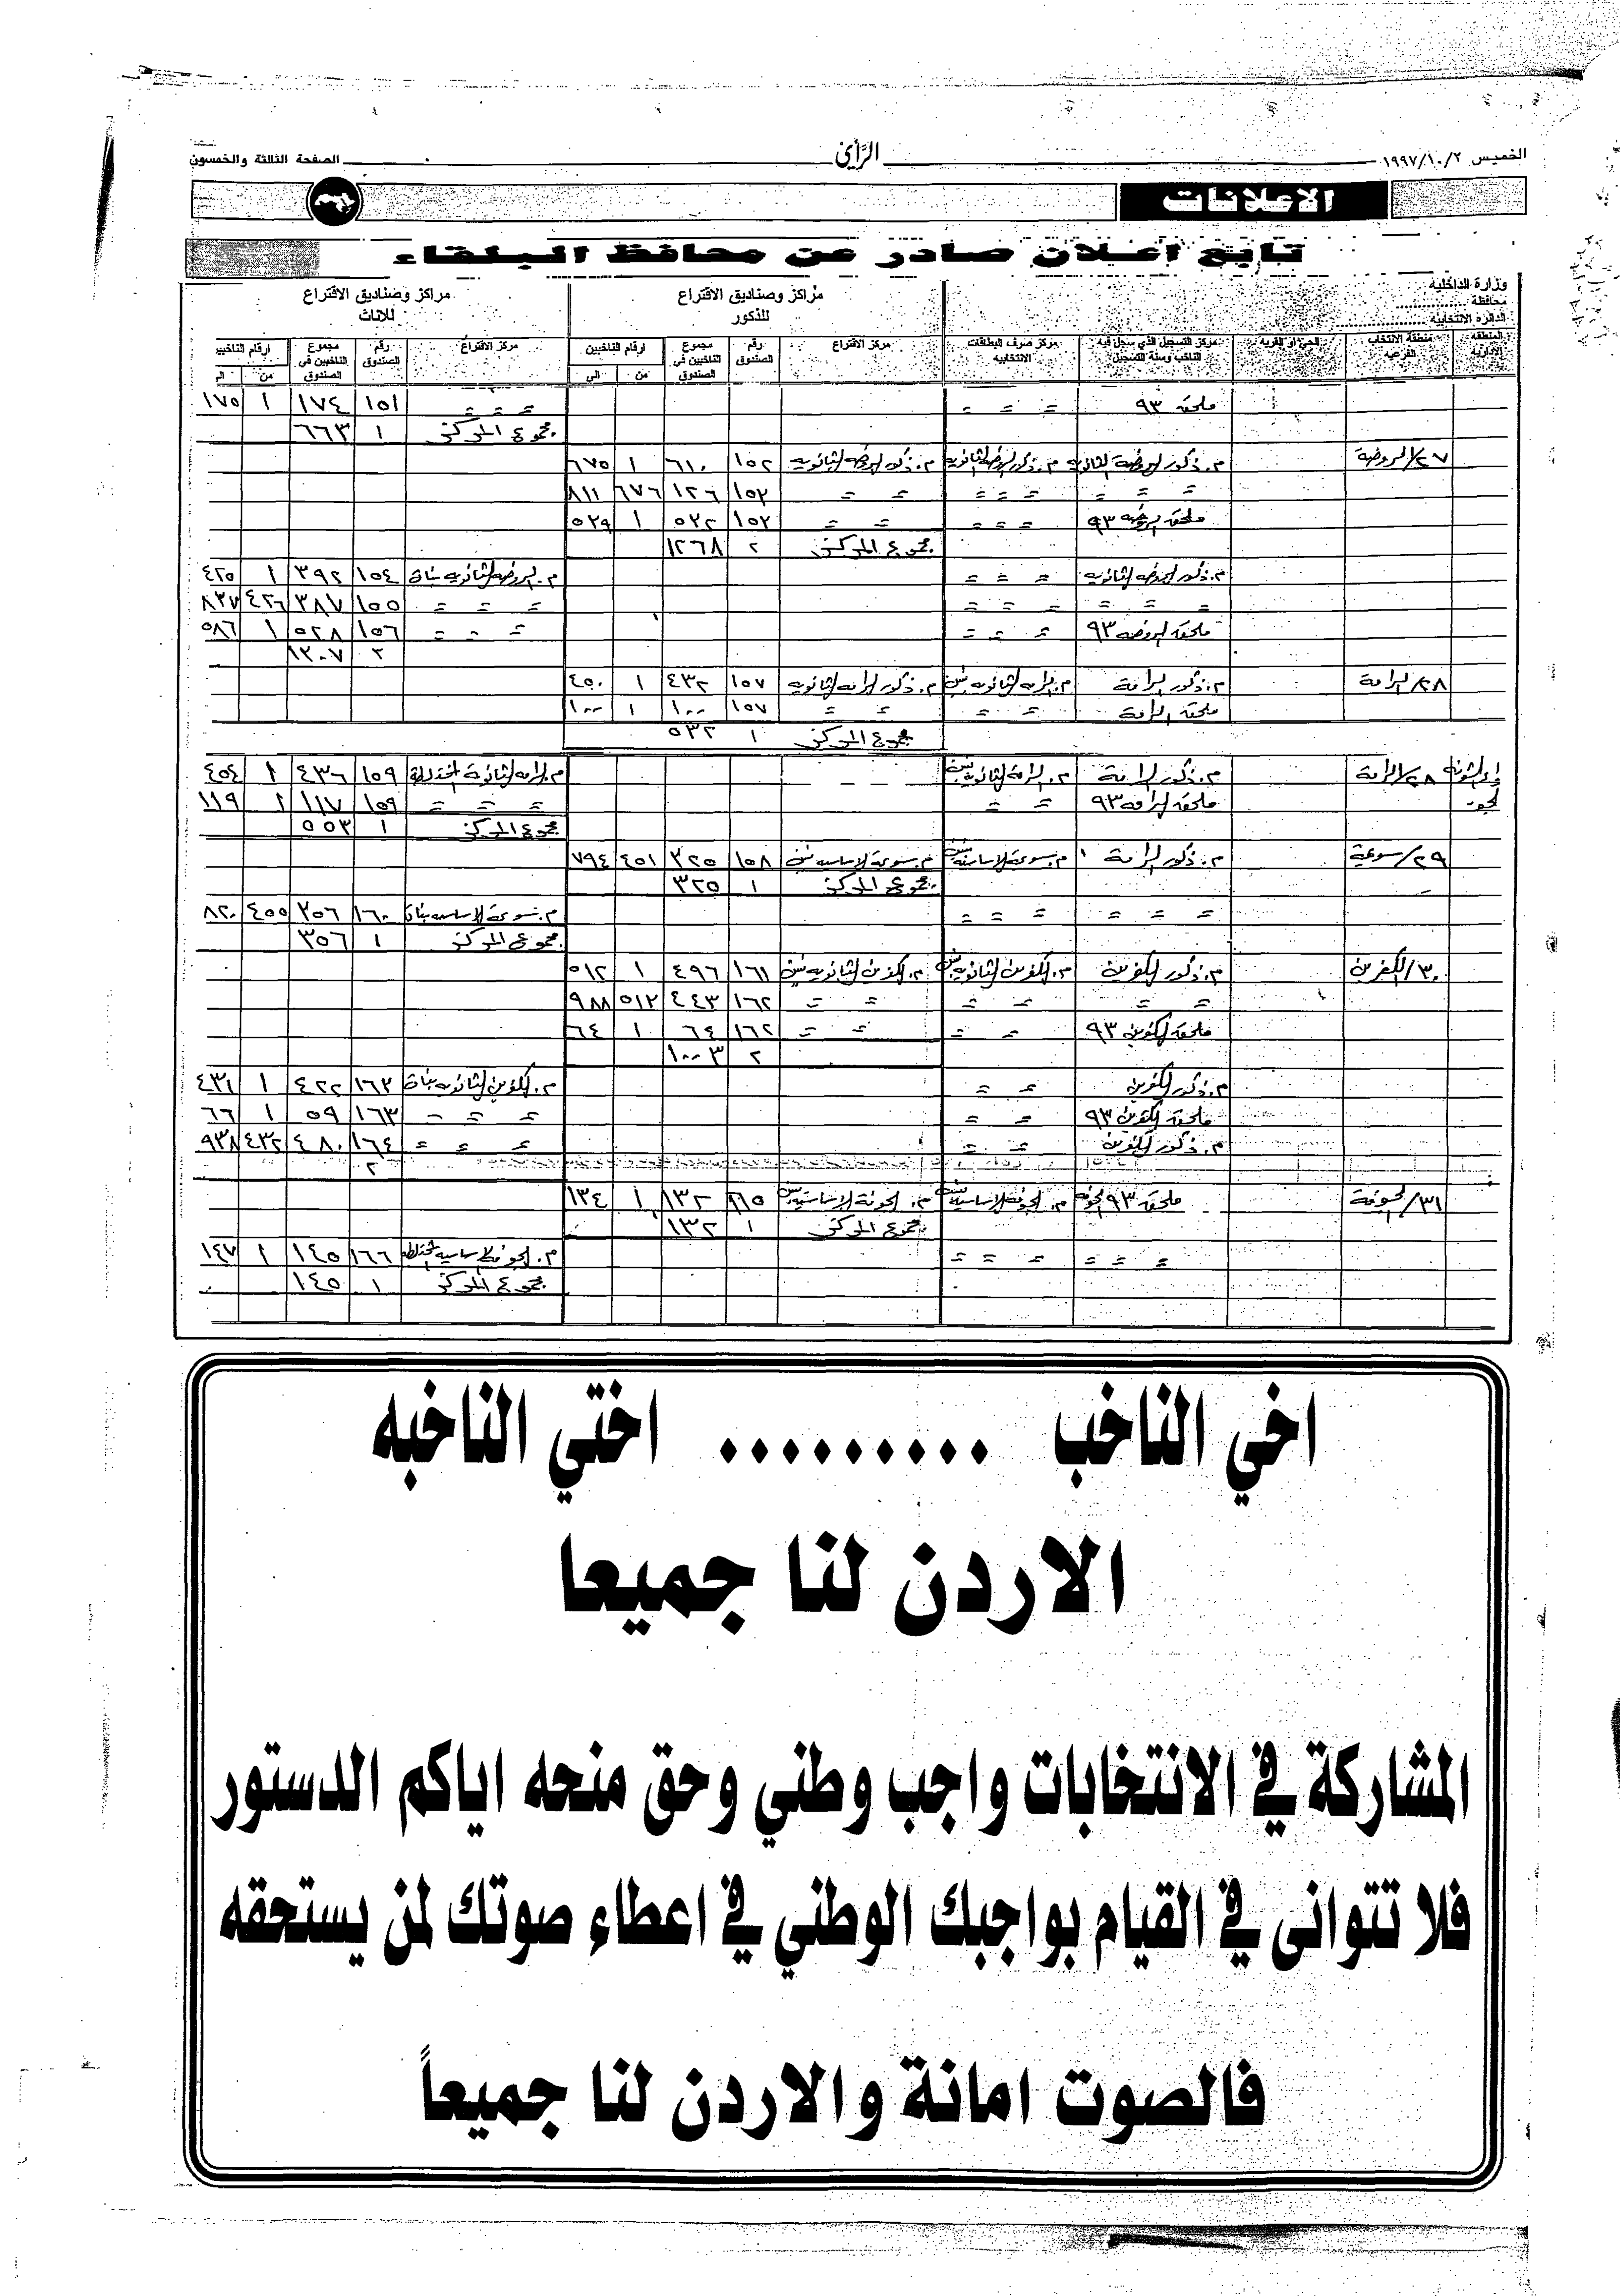 الخميس ١٩٩٧/١٠/٢
الرأي
الصفحة الثالثة والخمسون
الاعلانات
تابع اعلان صادر عن محافظ البلقاء
وزارة الداخلية
محافظة
الدائرة الانتخابية
مراكز وصناديق الاقتراع للذكور
مراكز وصناديق الاقتراع للاناث
المنطقة الادارية منطقة الانتخاب الفرعية الحي او القرية مركز التسجيل الذي سجل فيه الناخب وسنة التسجيل مركز صرف البطاقات الانتخابية مركز الاقتراع رقم الصندوق مجموع الناخبين في الصندوق ارقام الناخبين من الى مركز الاقتراع رقم الصندوق مجموع الناخبين في الصندوق ارقام الناخبين من الى
ملحقه ٩٣ = = = = = = ١٥١ ١٧٤ ١ ١٧٥
مجموع المركز ١ ٦٦٣
٢٧/الروضة م. ذكور الروضه الثانويه م. ذكور الروضه الثانويه م. ذكور الروضه الثانويه ١٥٢ ٦١٠ ١ ٦٧٥
= = = = = = = = ١٥٣ ١٢٦ ٦٧٦ ٨١١
ملحقه الروضه ٩٣ = = = = = ١٥٣ ٥٢٢ ١ ٥٢٩
مجموع المركز ٢ ١٢٦٨
م. ذكور الروضه الثانويه = = = م. الروضه الثانويه بنات ١٥٤ ٣٩٢ ١ ٤٢٥
= = = = = = = = = ١٥٥ ٣٨٧ ٤٢٦ ٨٣٧
ملحقه الروضه ٩٣ = = = = = = ١٥٦ ٥٢٨ ١ ٥٨٦
٣ ١٣٠٧
٢٨/الرامة م. ذكور الرامة م. الرامه الثانويه بنين م. ذكور الرامه الثانويه ١٥٧ ٤٣٢ ١ ٤٥٠
ملحقه الرامة = = = = ١٥٧ ١٠٠ ١ ١٠٠
مجموع المركز ١ ٥٣٢
لواء الشونه ٢٨/الرامة م. ذكور الرامة م. الرامة الثانويه بنين م. الرامه الثانوية المختلطة ١٥٩ ٤٣٦ ١ ٤٥٤
ملحقه الرامه ٩٣ = = = = = ١٥٩ ١١٧ ١ ١١٩
مجموع المركز ١ ٥٥٣
٢٩/سويمة م. ذكور الرامة م. سويمة الاساسيه بنين م. سويمة الاساسيه بنين ١٥٨ ٣٢٥ ٤٥١ ٧٩٤
مجموع المركز ١ ٣٢٥
= = = = = = م. سويمة الاساسيه بنات ١٦٠ ٣٥٦ ٤٥٥ ٨٢٠
مجموع المركز ١ ٣٥٦
٣٠/الكفرين م. ذكور الكفرين م. الكفرين الثانويه بنين م. الكفرين الثانويه بنين ١٦١ ٤٩٦ ١ ٥١٢
= = = = = = ١٦٢ ٤٤٣ ٥١٣ ٩٨٨
ملحقه الكفرين ٩٣ = = = = ١٦٢ ٦٤ ١ ٦٤
٢ ١٠٠٣
م. ذكور الكفرين = = م. الكفرين الثانويه بنات ١٦٣ ٤٢٢ ١ ٤٣١
ملحقه الكفرين ٩٣ = = = = = ١٦٣ ٥٩ ١ ٦٦
م. ذكور الكفرين = = = = = ١٦٤ ٤٨٠ ٤٣٢ ٩٣٨
٢
٣١/الجوفة ملحقه ٩٣ الجوفه م. الجوفه الاساسيه بنين م. الجوفة الاساسيه بنين ١٦٥ ١٣٢ ١ ١٣٤
مجموع المركز ١ ١٣٢
= = = = = = م. الجوفه الاساسيه المختلطه ١٦٦ ١٤٥ ١ ١٤٧
مجموع المركز ١ ١٤٥
اخي الناخب ......... اختي الناخبه
الاردن لنا جميعا
المشاركة في الانتخابات واجب وطني وحق منحه اياكم الدستور
فلا تتوانى في القيام بواجبك الوطني في اعطاء صوتك لمن يستحقه
فالصوت امانة والاردن لنا جميعاً